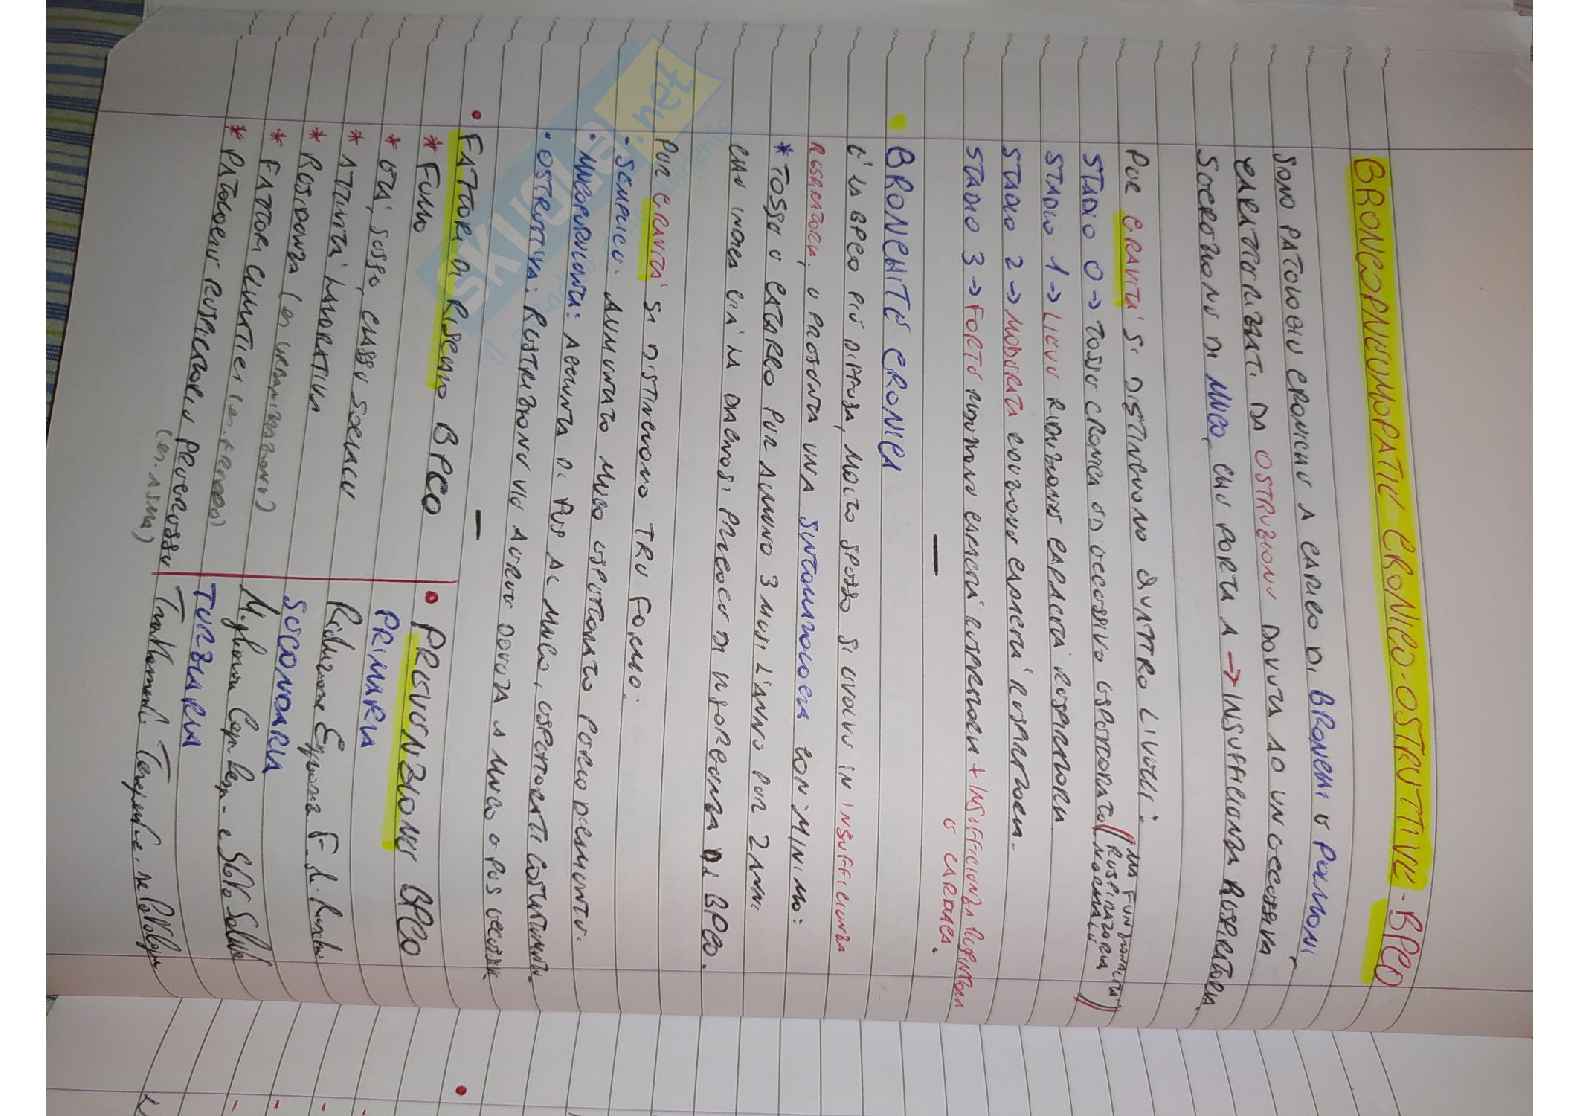 BRONCOPNEUMOPATIE CRONICO-OSTRUTTIVE - BPCO
SONO PATOLOGIE CRONICHE A CARICO DI BRONCHI E POLMONI
CARATTERIZZATI DA OSTRUZIONE DOVUTA AD UN'ECCESSIVA
SECREZIONE DI MUCO, CHE PORTA A → INSUFFICIENZA RESPIRATORIA
PER GRAVITÀ SI DISTINGUONO QUATTRO LIVELLI:
STADIO 0 → TOSSE CRONICA ED ECCESSIVO ESPETTORATO (MA FUNZIONALITÀ RESPIRATORIA NORMALE)
STADIO 1 → LIEVE RIDUZIONE CAPACITÀ RESPIRATORIA
STADIO 2 → MODERATA RIDUZIONE CAPACITÀ RESPIRATORIA.
STADIO 3 → FORTE RIDUZIONE CAPACITÀ RESPIRATORIA + INSUFFICIENZA RESPIRATORIA
O CARDIACA.
• BRONCHITE CRONICA
È LA BPCO PIÙ DIFFUSA, MOLTO SPESSO SI EVOLVE IN INSUFFICIENZA
RESPIRATORIA, E PRESENTA UNA SINTOMATOLOGIA CON MINIMO:
* TOSSE E CATARRO PER ALMENO 3 MESI L'ANNO PER 2 ANNI
CHE INDICA GIÀ LA DIAGNOSI PRECOCE DI INSORGENZA DI BPCO.
PER GRAVITÀ SI DISTINGUONO TRE FORME:
• SEMPLICE: AUMENTATO MUCO ESPETTORATO PERIODICAMENTE.
• MUCOPURULENTA: AGGIUNTA DI PUS AL MUCO, ESPETTORATI COSTANTEMENTE
• OSTRUTTIVA: RESTRIZIONE VIE AEREE DOVUTA A MUCO O PUS ECCESSIVI
• FATTORI DI RISCHIO BPCO
* FUMO
* ETÀ, SESSO, CLASSE SOCIALE
* ATTIVITÀ LAVORATIVA
* RESIDENZA (es URBANIZZAZIONE)
* FATTORI CLIMATICI (es. FREDDO)
* PATOLOGIE RESPIRATORIE PREGRESSE
(es. ASMA)
• PREVENZIONE BPCO
PRIMARIA
Riduzione Esposizione F.d. Rischio
SECONDARIA
Migliorare Cap. Resp. e Stato Salute
TERZIARIA
Trattamento Terapeutico
SKUOLA.net